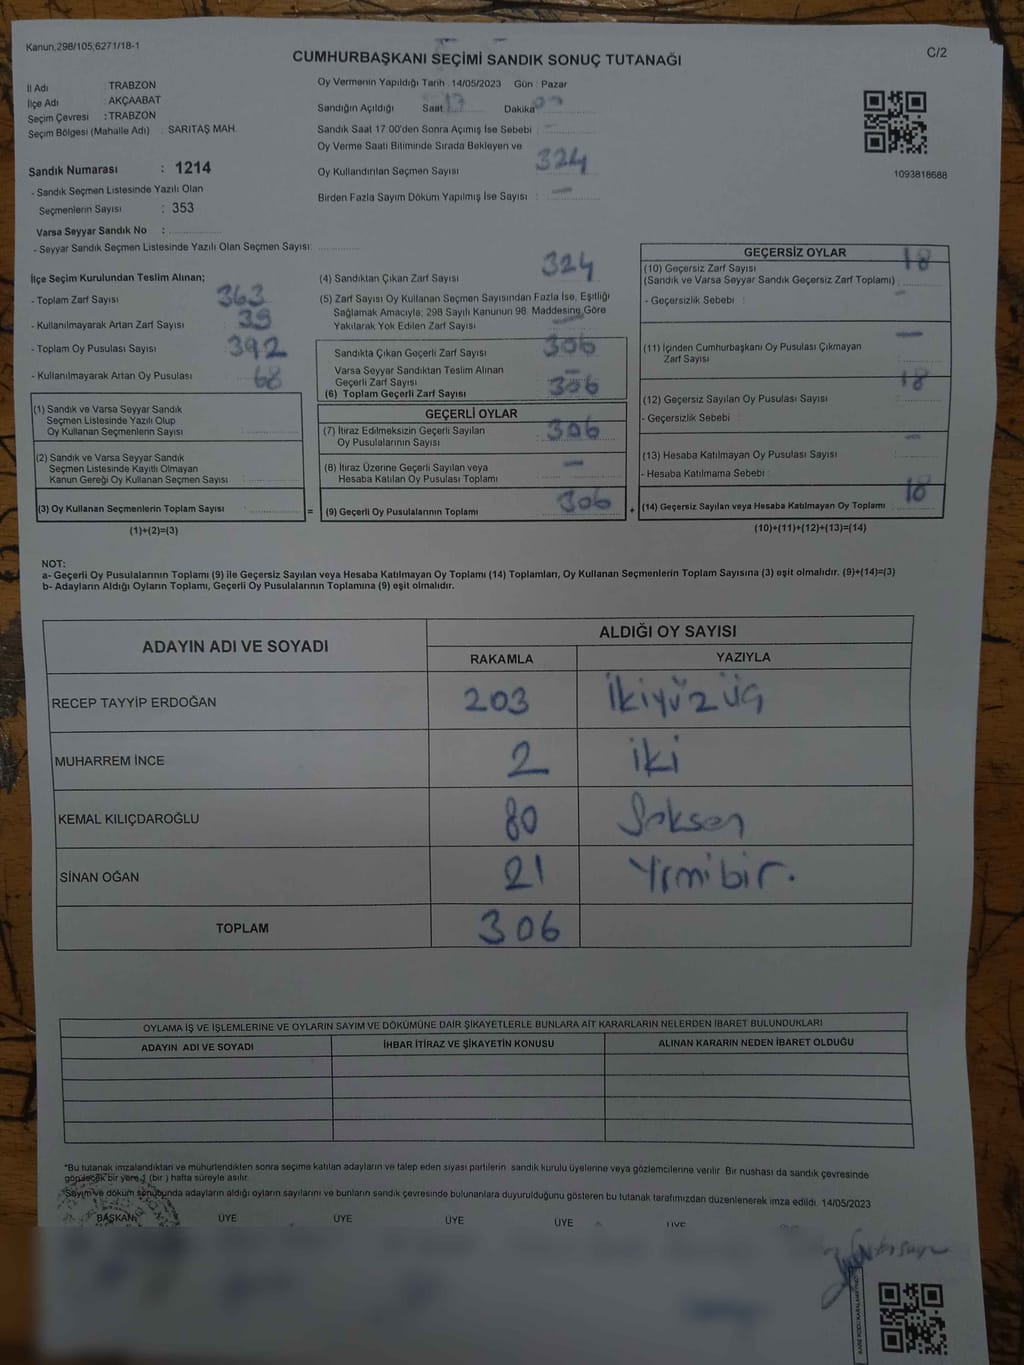 Kanun,298/105;6271/18-1
CUMHURBAŞKANI SEÇİMİ SANDIK SONUÇ TUTANAĞI
C/2
İl Adı : TRABZON
İlçe Adı : AKÇAABAT
Seçim Çevresi : TRABZON
Seçim Bölgesi (Mahalle Adı) : SARITAŞ MAH.
Sandık Numarası : 1214
- Sandık Seçmen Listesinde Yazılı Olan
Seçmenlerin Sayısı : 353
Varsa Seyyar Sandık No :
- Seyyar Sandık Seçmen Listesinde Yazılı Olan Seçmen Sayısı:
Oy Vermenin Yapıldığı Tarih : 14/05/2023 Gün : Pazar
Sandığın Açıldığı Saat 17 Dakika
Sandık Saat 17:00'den Sonra Açımış İse Sebebi : -
Oy Verme Saati Bitiminde Sırada Bekleyen ve
Oy Kullandırılan Seçmen Sayısı 324
Birden Fazla Sayım Döküm Yapılmış İse Sayısı : -
1093818688
İlçe Seçim Kurulundan Teslim Alınan;
- Toplam Zarf Sayısı 363
- Kullanılmayarak Artan Zarf Sayısı 39
- Toplam Oy Pusulası Sayısı 392
- Kullanılmayarak Artan Oy Pusulası 68
(1) Sandık ve Varsa Seyyar Sandık
Seçmen Listesinde Yazılı Olup
Oy Kullanan Seçmenlerin Sayısı
(2) Sandık ve Varsa Seyyar Sandık
Seçmen Listesinde Kayıtlı Olmayan
Kanun Gereği Oy Kullanan Seçmen Sayısı
(3) Oy Kullanan Seçmenlerin Toplam Sayısı
(1)+(2)=(3)
=
(4) Sandıktan Çıkan Zarf Sayısı 324
(5) Zarf Sayısı Oy Kullanan Seçmen Sayısından Fazla İse, Eşitliği
Sağlamak Amacıyla; 298 Sayılı Kanunun 98. Maddesine Göre
Yakılarak Yok Edilen Zarf Sayısı -
Sandıkta Çıkan Geçerli Zarf Sayısı 306
Varsa Seyyar Sandıktan Teslim Alınan
Geçerli Zarf Sayısı -
(6) Toplam Geçerli Zarf Sayısı 306
GEÇERLİ OYLAR
(7) İtiraz Edilmeksizin Geçerli Sayılan
Oy Pusulalarının Sayısı 306
(8) İtiraz Üzerine Geçerli Sayılan veya
Hesaba Katılan Oy Pusulası Toplamı -
(9) Geçerli Oy Pusulalarının Toplamı 306
+
GEÇERSİZ OYLAR
(10) Geçersiz Zarf Sayısı 18
(Sandık ve Varsa Seyyar Sandık Geçersiz Zarf Toplamı)
- Geçersizlik Sebebi : -
(11) İçinden Cumhurbaşkanı Oy Pusulası Çıkmayan
Zarf Sayısı -
(12) Geçersiz Sayılan Oy Pusulası Sayısı 18
- Geçersizlik Sebebi :
(13) Hesaba Katılmayan Oy Pusulası Sayısı -
- Hesaba Katılmama Sebebi :
(14) Geçersiz Sayılan veya Hesaba Katılmayan Oy Toplamı 18
(10)+(11)+(12)+(13)=(14)
NOT:
a- Geçerli Oy Pusulalarının Toplamı (9) ile Geçersiz Sayılan veya Hesaba Katılmayan Oy Toplamı (14) Toplamları, Oy Kullanan Seçmenlerin Toplam Sayısına (3) eşit olmalıdır. (9)+(14)=(3)
b- Adayların Aldığı Oyların Toplamı, Geçerli Oy Pusulalarının Toplamına (9) eşit olmalıdır.
ADAYIN ADI VE SOYADI ALDIĞI OY SAYISI
RAKAMLA YAZIYLA
RECEP TAYYİP ERDOĞAN 203 İkiyüzüç
MUHARREM İNCE 2 iki
KEMAL KILIÇDAROĞLU 80 Seksen
SİNAN OĞAN 21 Yirmibir.
TOPLAM 306
OYLAMA İŞ VE İŞLEMLERİNE VE OYLARIN SAYIM VE DÖKÜMÜNE DAİR ŞİKAYETLERLE BUNLARA AİT KARARLARIN NELERDEN İBARET BULUNDUKLARI
ADAYIN ADI VE SOYADI İHBAR İTİRAZ VE ŞİKAYETİN KONUSU ALINAN KARARIN NEDEN İBARET OLDUĞU
*Bu tutanak imzalandıktan ve mühürlendikten sonra seçime katılan adayların ve talep eden siyasi partilerin sandık kurulu üyelerine veya gözlemcilerine verilir. Bir nushası da sandık çevresinde
görülecek bir yere 1 (bir) hafta süreyle asılır.
*Sayım ve döküm sonubunda adayların aldığı oyların sayılarını ve bunların sandık çevresinde bulunanlara duyurulduğunu gösteren bu tutanak tarafımızdan düzenlenerek imza edildi. 14/05/2023
BAŞKAN ÜYE ÜYE ÜYE ÜYE ÜYE